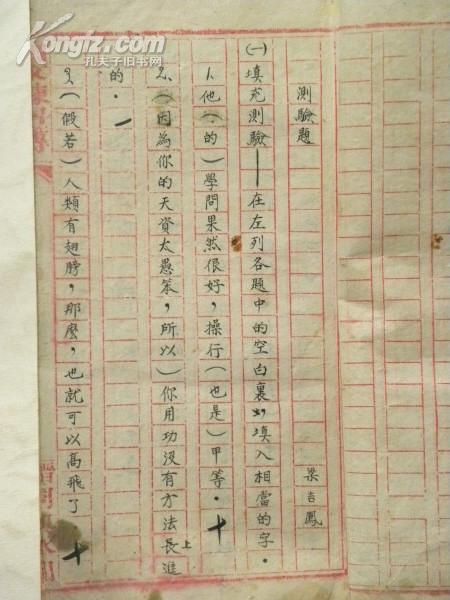 測驗題
梁吉鳳
(一)填充測驗——在左列各題中的空白裏,填入相當的字.
1.他(的)學問果然很好,操行(也是)甲等. 十
2.(因為你的天資太愚笨,所以)你用功沒有方法長進
上
的. 一
3.(假若)人類有翅膀,那麼,也就可以高飛了 十
Kongfz.com
孔夫子旧书网